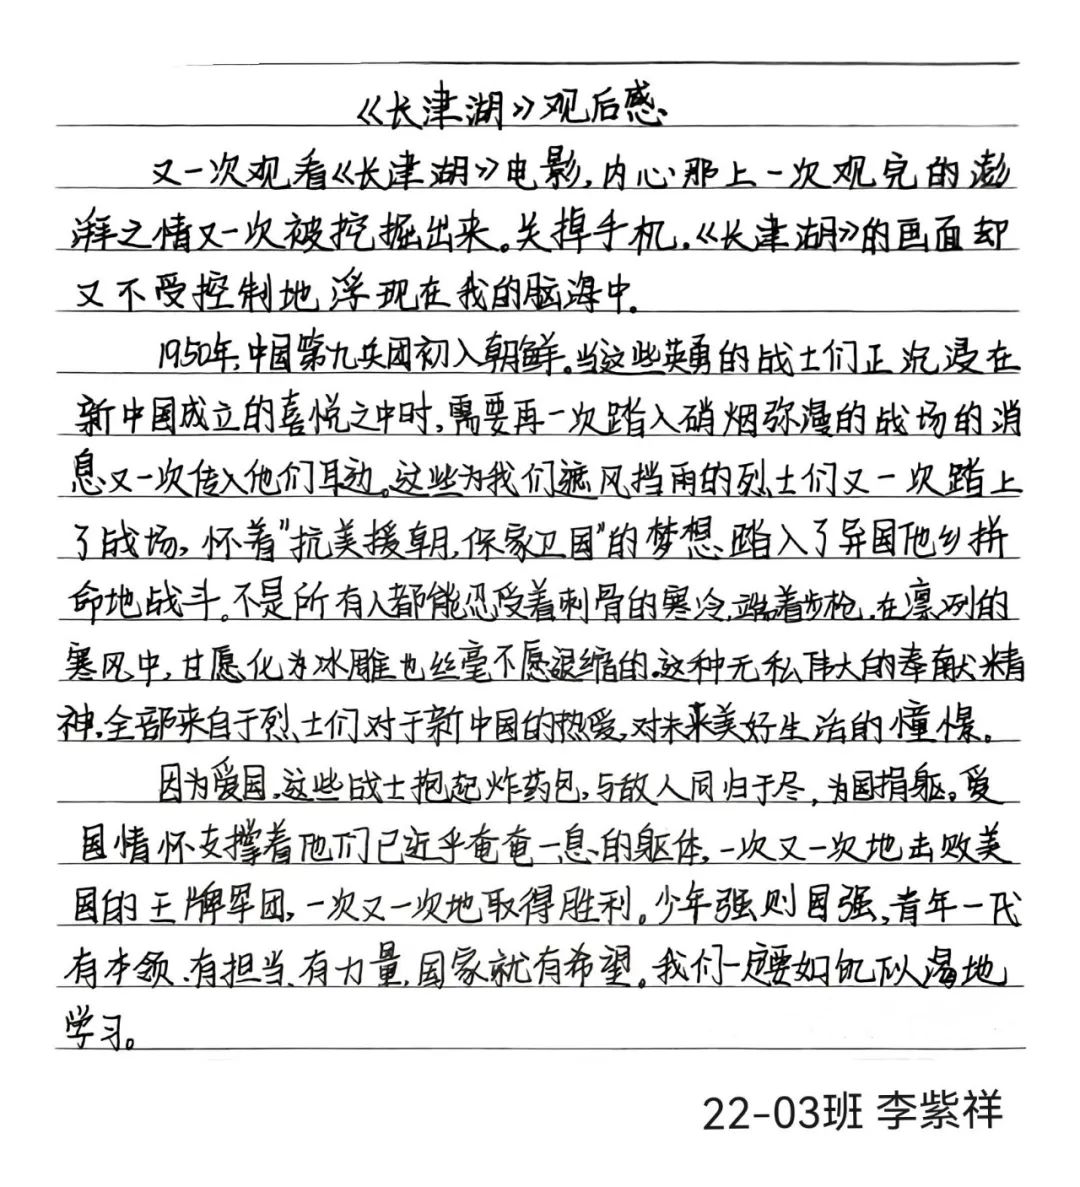 《长津湖》观后感
又一次观看《长津湖》电影,内心那上一次观完的澎
湃之情又一次被挖掘出来。关掉手机,《长津湖》的画面却
又不受控制地浮现在我的脑海中。
1950年,中国第九兵团初入朝鲜。当这些英勇的战士们正沉浸在
新中国成立的喜悦之中时,需要再一次踏入硝烟弥漫的战场的消
息又一次传入他们耳边。这些为我们遮风挡雨的烈士们又一次踏上
了战场,怀着"抗美援朝,保家卫国"的梦想,踏入了异国他乡拼
命地战斗。不是所有人都能忍受着刺骨的寒冷,端着步枪,在凛冽的
寒风中,甘愿化为冰雕也丝毫不愿退缩的。这种无私伟大的奉献精
神,全部来自于烈士们对于新中国的热爱,对未来美好生活的憧憬。
因为爱国,这些战士抱起炸药包,与敌人同归于尽,为国捐躯。爱
国情怀支撑着他们已近乎奄奄一息的躯体,一次又一次地击败美
国的王牌军团,一次又一次地取得胜利。少年强则国强,青年一代
有本领、有担当、有力量,国家就有希望。我们一定要如饥似渴地
学习。
22-03班 李紫祥